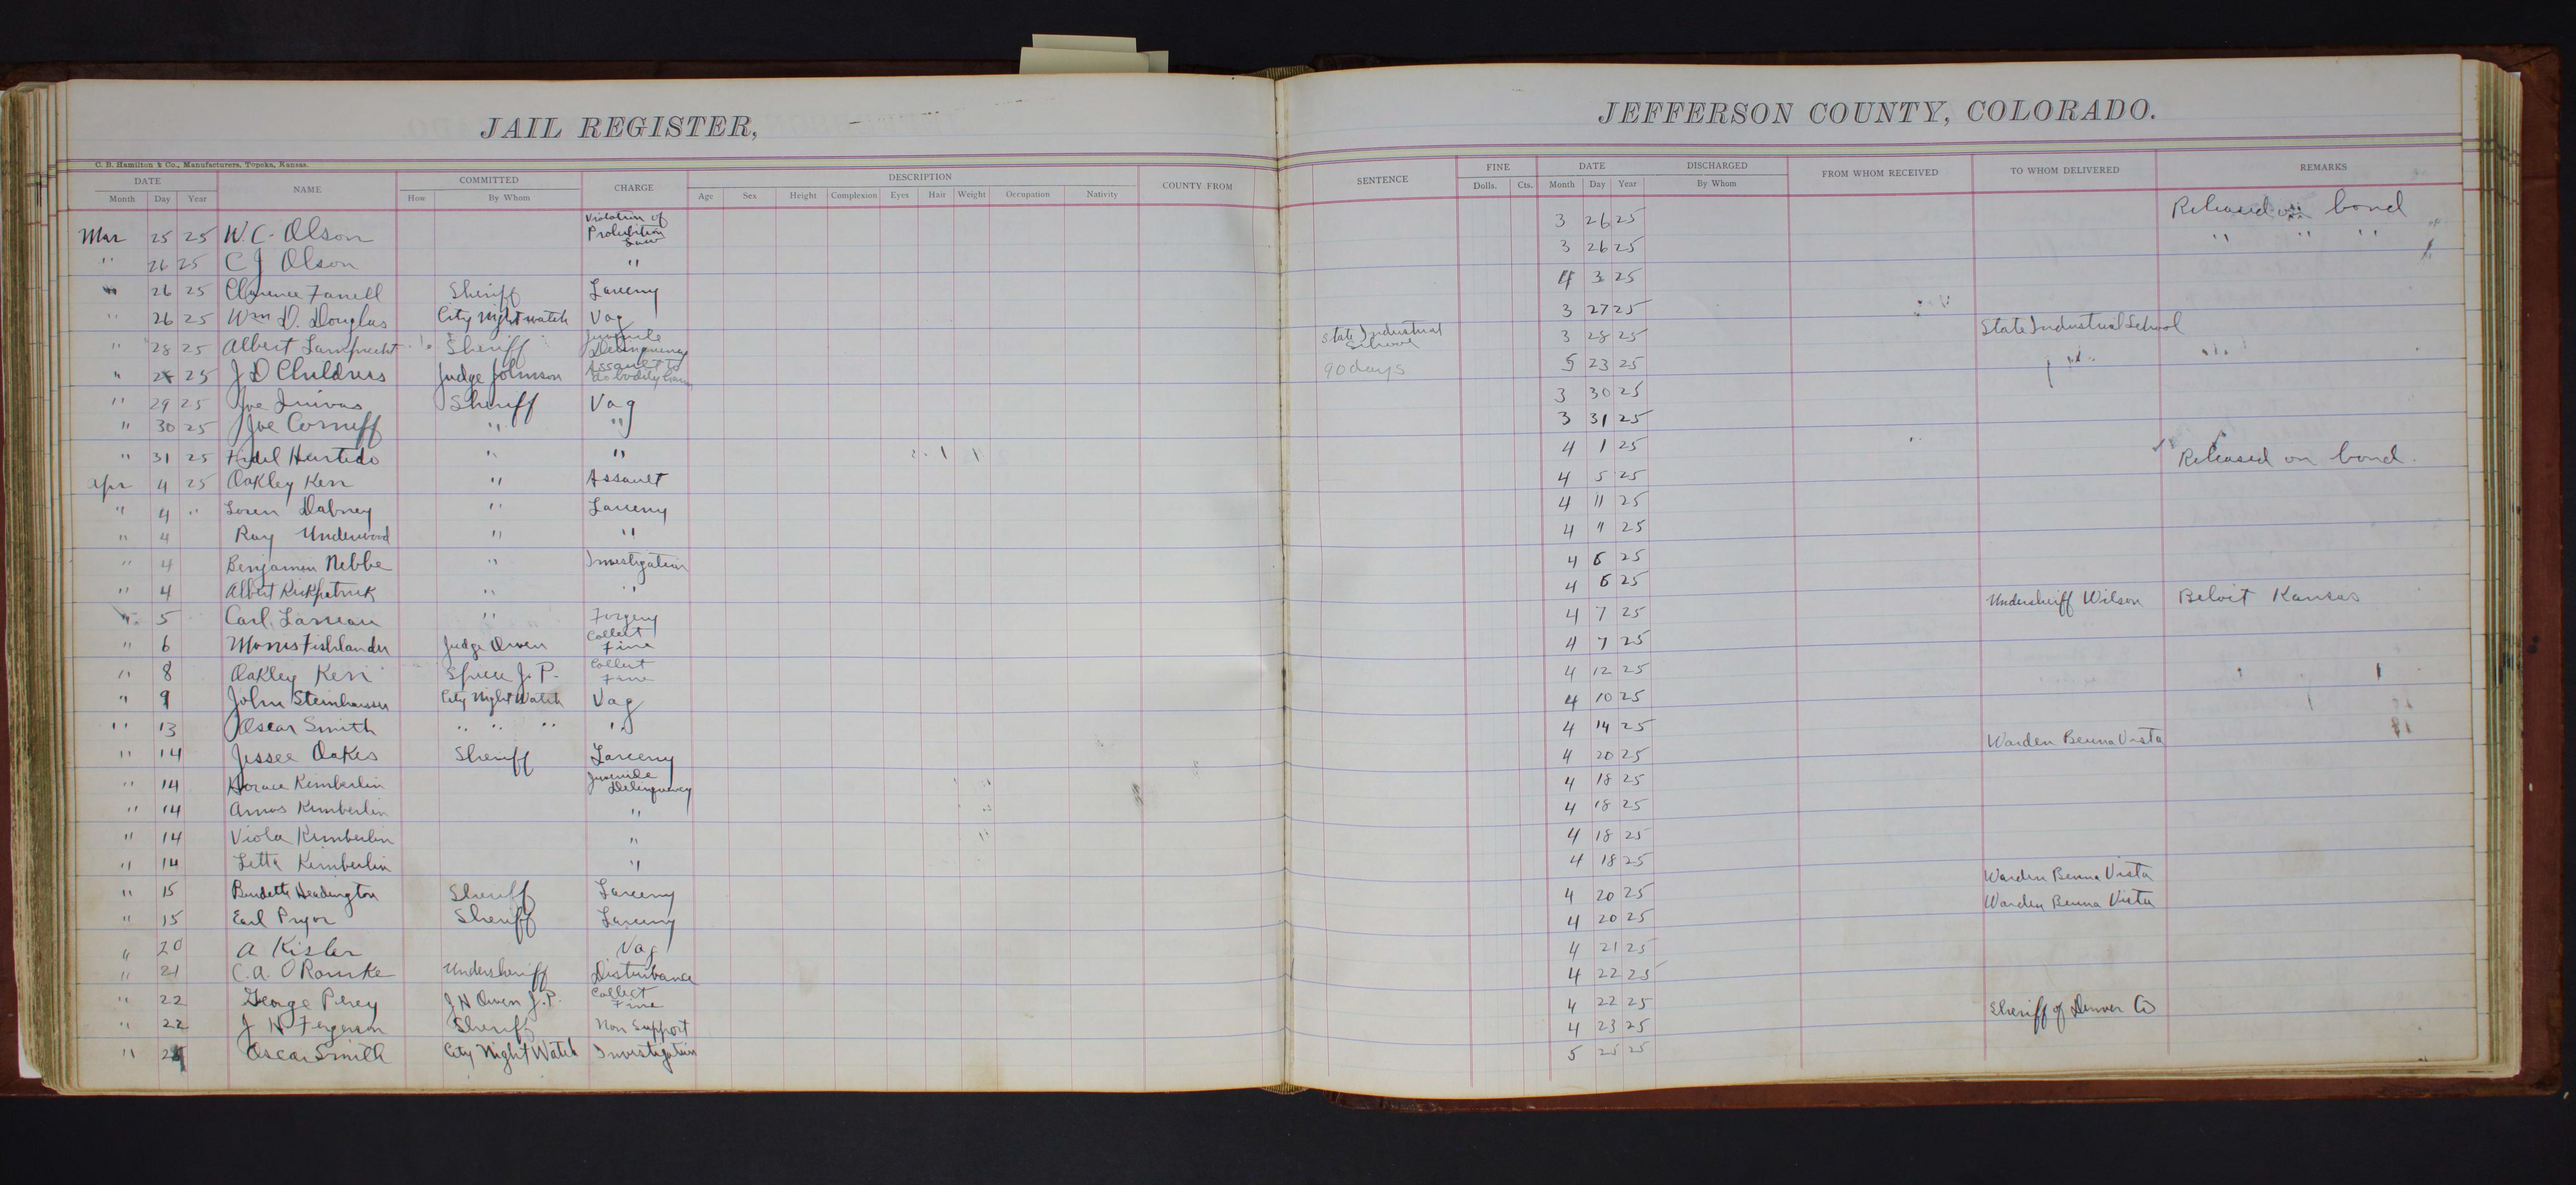 JAIL REGISTER, JEFFERSON COUNTY, COLORADO.
C. B. Hamilton & Co., Manufacturers, Topeka, Kansas.
DATE NAME COMMITTED CHARGE DESCRIPTION COUNTY FROM SENTENCE FINE DATE DISCHARGED FROM WHOM RECEIVED TO WHOM DELIVERED REMARKS
Month Day Year How By Whom Age Sex Height Complexion Eyes Hair Weight Occupation Nativity Dolls. Cts. Month Day Year By Whom
Mar 25 25 W.C. Olson Violation of Prohibition Law 3 26 25 Released on bond
" 26 25 C J Olson " 3 26 25 " " "
" 26 25 Clarence Farrell Sheriff Larceny 4 3 25
" 26 25 Wm D. Douglas City Night watch Vag 3 27 25
" 28 25 Albert Sheriff Juvenile Delinquency State Industrial School 3 28 25 State Industrial School
" 25 J D Childress Judge Johnson Assault to do bodily harm 90 days 5 23 25
" 29 25 Joe Sheriff Vag 3 30 25
" 30 25 Joe " " 3 31 25
" 31 25 Fidel " " 4 1 25
Apr 4 25 Oakley Kerr " Assault 4 5 25 Released on bond.
" 4 " Loren Dabney " Larceny 4 11 25
" 4 Ray Underwood " " 4 " 25
" 4 Benjamin Nebbe " Investigation 4 6 25
" 4 Albert Kirkpatrick " " 4 6 25
" 5 Carl " Forgery 4 7 25 Undersheriff Wilson Beloit Kansas
" 6 Morris Fishlander Judge Owen Collect Fine 4 7 25
" 8 Oakley Kerr J. P. Collect Fine 4 12 25
" 9 John City Night Watch Vag 4 10 25
" 13 Oscar Smith " " " " 4 14 25
" 14 Jessee Oakes Sheriff Larceny 4 20 25 Warden Beuna Vista
" 14 Horace Kimberlin Juvenile Delinquency 4 18 25
" 14 Amos Kimberlin " 4 18 25
" 14 Viola Kimberlin " 4 18 25
" 14 Letta Kimberlin " 4 18 25
" 15 Burdette Headington Sheriff Larceny 4 20 25 Warden Beuna Vista
" 15 Earl Pryor Sheriff Larceny 4 20 25 Warden Beuna Vista
" 20 A Kisler Vag 4 21 25
" 21 C.A. O Rourke Undersheriff Disturbance 4 22 25
" 22 George Percy J H Owen J.P. Collect Fine 4 22 25
" 22 J H Fergerson Sheriff Non Support 4 23 25 Sheriff of Denver Co
" 24 Oscar Smith City Night Watch Investigation 5 25 25